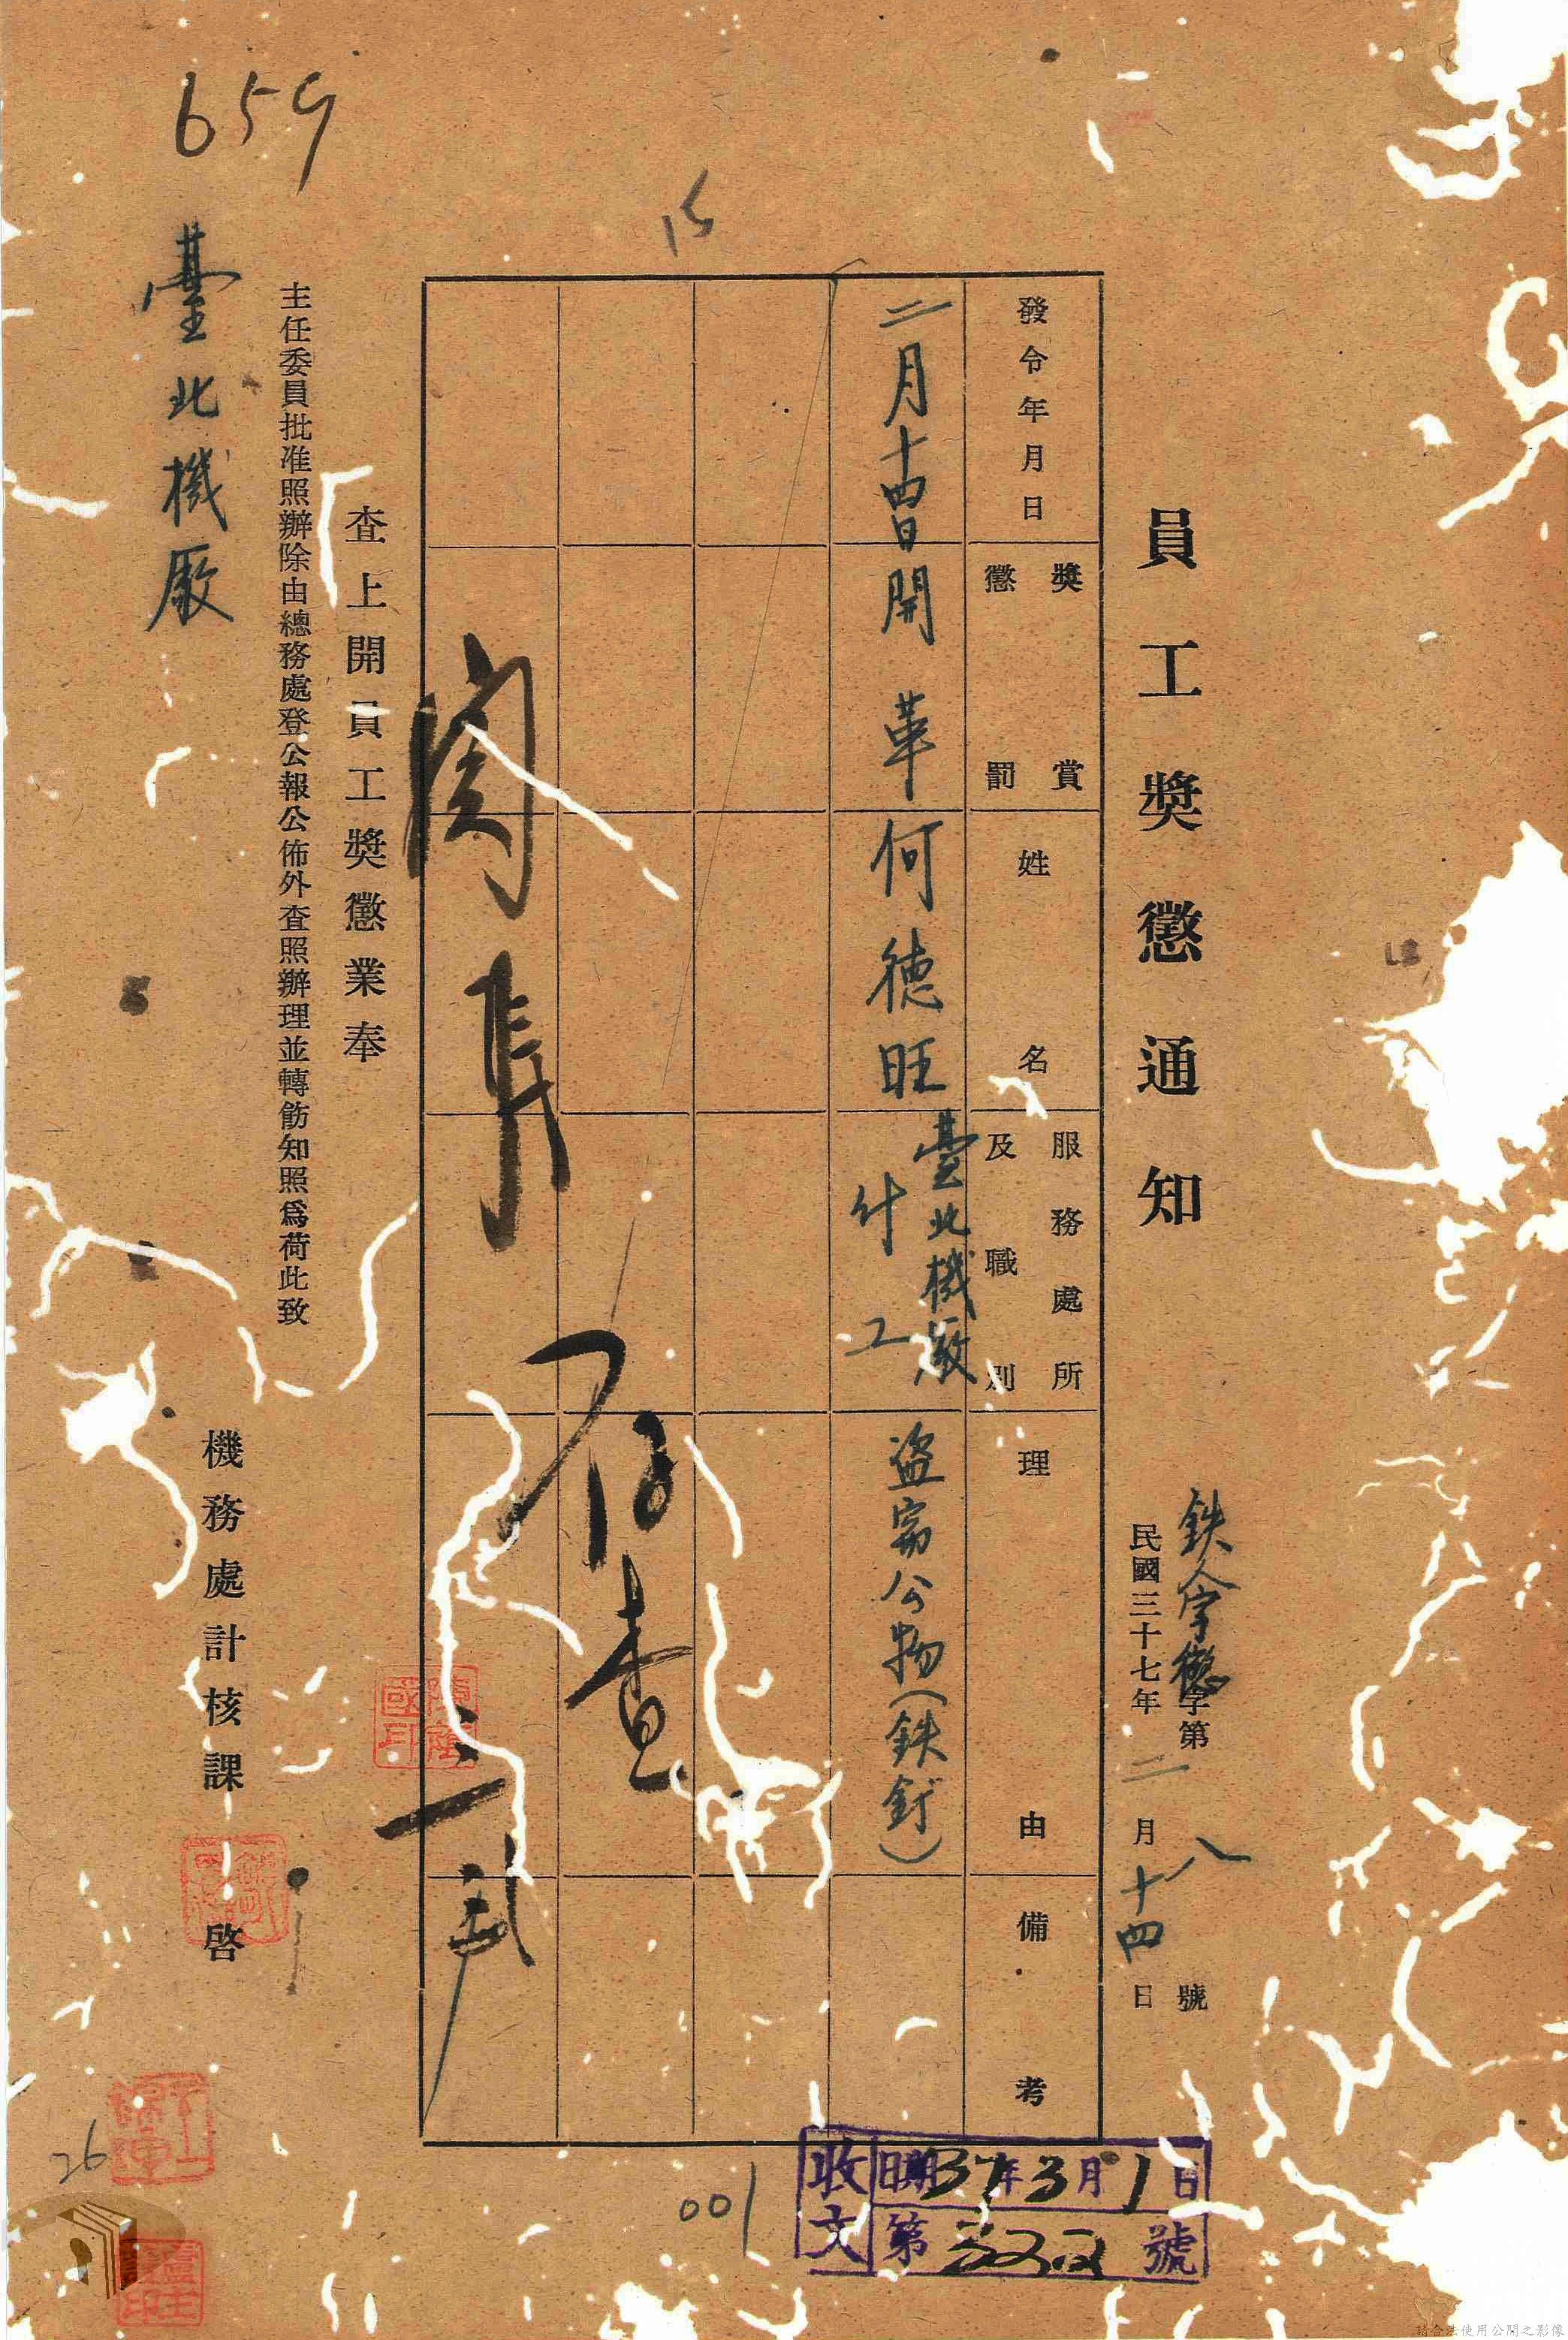 員工獎懲通知
鉄人字懲字第八號
民國三十七年二月十四日
發令年月日
獎賞
懲罰
姓名
服務處所
及職別
理由
備考
二月十四日
開革
何德旺
臺北機廠
什工
盜窃公物(鉄釘)
閱後
存查
查上開員工獎懲業奉
主任委員批准照辦除由總務處登公報公佈外查照辦理並轉飭知照爲荷此致
臺北機廠
機務處計核課啓
659
15
26
001
收文
日期37年3月1日
第322號
請合法使用公開之影像